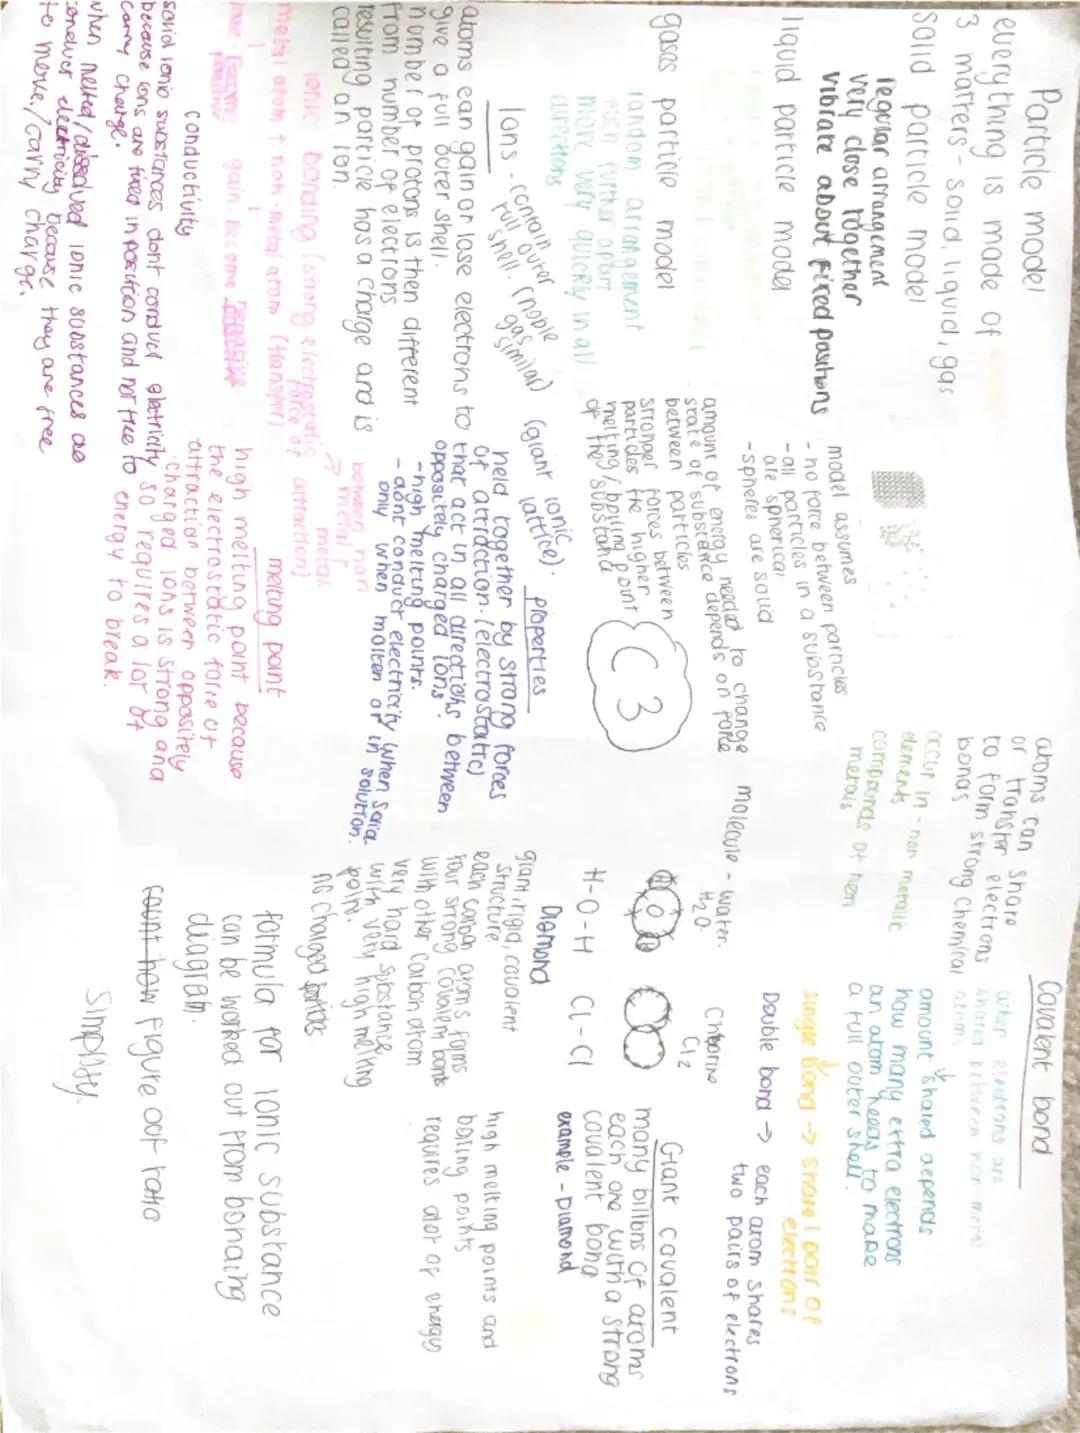 Particle model
everything is made of
3 matters - solid, liquid, gas
Solid particle model
regular arrangement
very close together
vibrate about fixed positions
liquid particle model
gases particle model
random arrangement
much further apart
move very quickly in all
directions
model assumes
- no force between particles
- all particles in a substance
are spherical
- spheres are solid
amount of energy needed to change
state of substance depends on force
between particles
stronger forces between
particles the higher
melting/boiling point
of the substance
C3
Ions - contain outer
full shell. (noble
gas similar)
atoms can gain or lose electrons to
give a full outer shell.
number of protons is then different
from number of electrons.
resulting particle has a charge and is
called an ion.
(giant ionic
lattice).
properties
held together by strong forces
of attraction. (electrostatic)
that act in all directions between
oppositely charged ions.
- high melting points.
- dont conduct electricity when solid
only when molten or in solution.
ionic bonding (strong electrostatic
force of attraction)
between non
metal + metal
metal atom + non-metal atom (transfer)
Become gain. Become negative
positive
conductivity
solid ionic substances dont conduct electricity
because ions are fixed in position and not free to
carry charge.
when melted/dissolved ionic substances do
conduct electricity because they are free
to move/carry charge.
melting point
high melting point because
the electrostatic force of
attraction between oppositely
charged ions is strong and
so requires a lot of
energy to break.
Covalent bond
atoms can share
or transfer electrons
to form strong chemical
bonds
occur in - non metalic
elements
compounds of non
metals
when electrons are
shared between non metal
atoms
amount shared depends
how many extra electrons
an atom needs to make
a full outer shell.
single bond → share 1 pair of
electrons
Double bond → each atom shares
two pairs of electrons
molecule - water.
H2O.
Chlorine
Cl2
H O H
H-O-H Cl-Cl
Giant covalent
many billions of atoms
each one with a strong
covalent bond
example - Diamond
Diamond
giant rigid, covalent
structure
each carbon atom forms
four strong covalent bonds
with other carbon atom
very hard substance
with very high melting
point.
no charged
high melting points and
boiling points
requires alot of energy
formula for ionic substance
can be worked out from bonding
diagram.
count how figure out ratio
simplify.